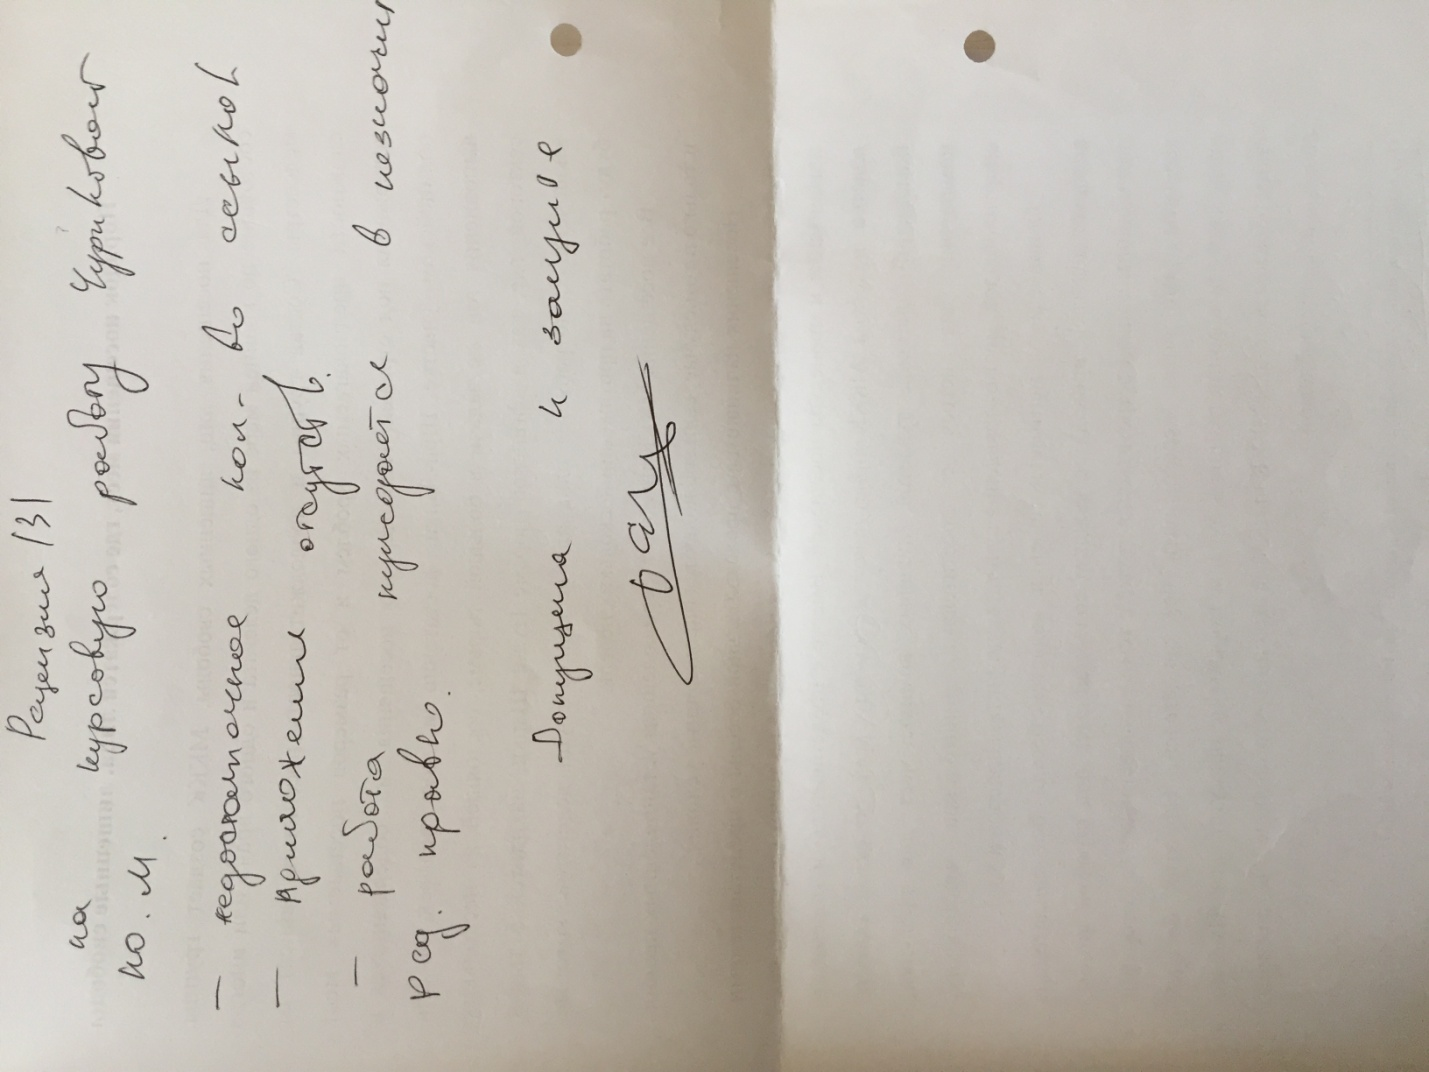 Рецензия /3/
на курсовую работу Чуриковой
Ю. М.
— недостаточное кол-во ссылок
— приложения отсутств.
— работа нуждается в незначит
ред. правке.
Допущена к защите